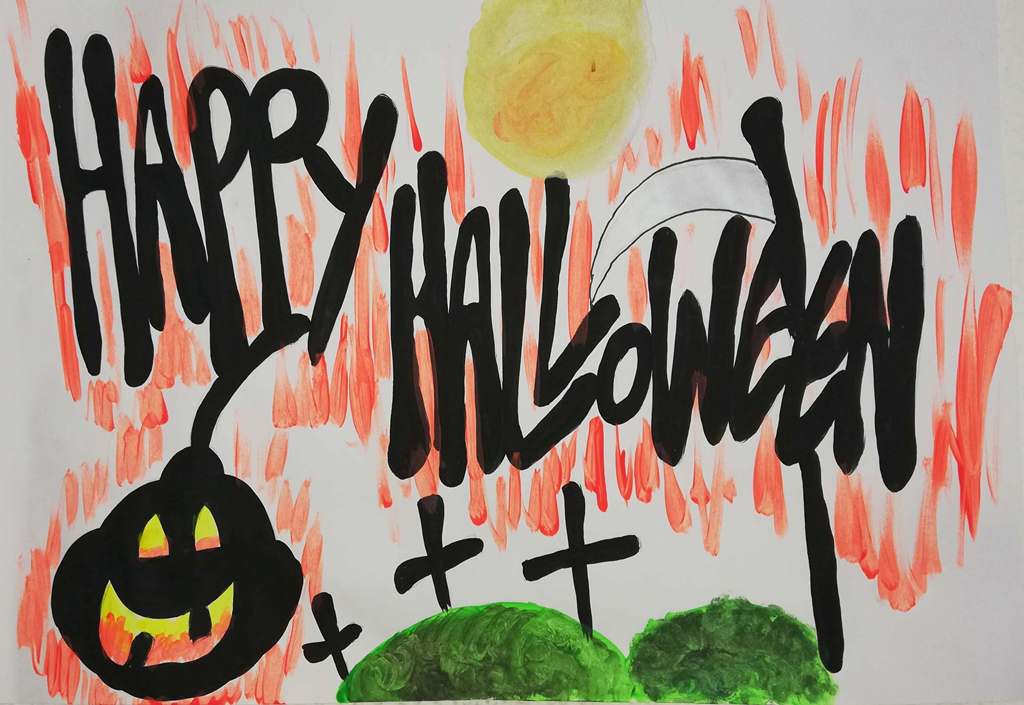 HAPPY
HALLOWEEN